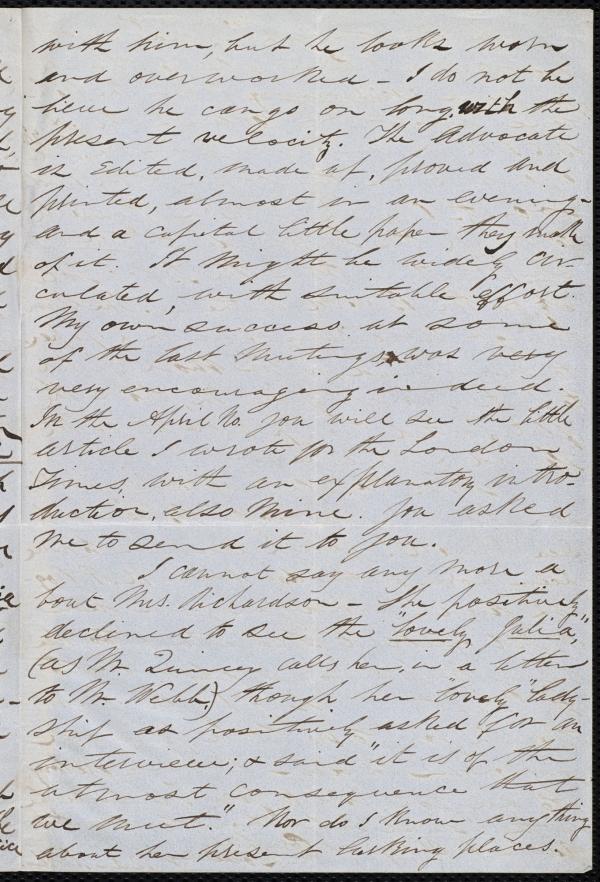 with him, but he looks worn
and overworked - I do not be
lieve he can go on long, with the
present velocity. The Advocate
is Edited, made up, proved and
printed, almost in an evening -
and a capital little paper they make
of it. It might be widely cir-
culated, with suitable effort.
My own success at some
of the last Meetings, was very
very encouraging indeed.
In the April No. you will see the little
article I wrote for the London
Times, with an explanatory intro
duction, also mine. You asked
me to send it to you.
I cannot say any more a
bout Mrs. Richardson - She positively
declined to see the "lovely Julia,"
(as Mr. Quincy calls her, in a letter
to Mr. Webb) though her "lovely" lady-
ship as positively asked for an
interview; & said "it is of the
utmost consequence that
we meet." Nor do I know anything
about her present lurking places.